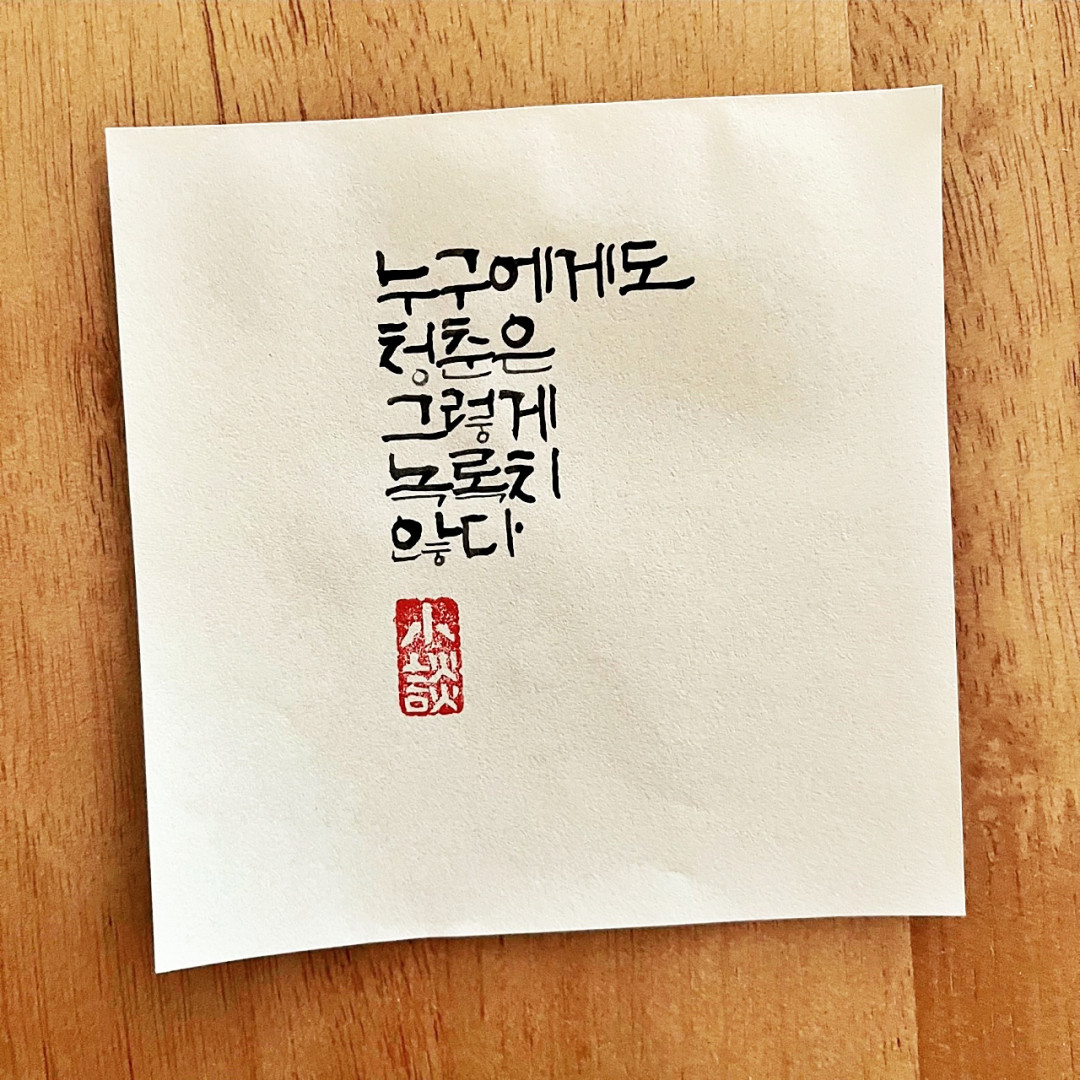 누구에게도
청춘은
그렇게
녹록치
않다
小談